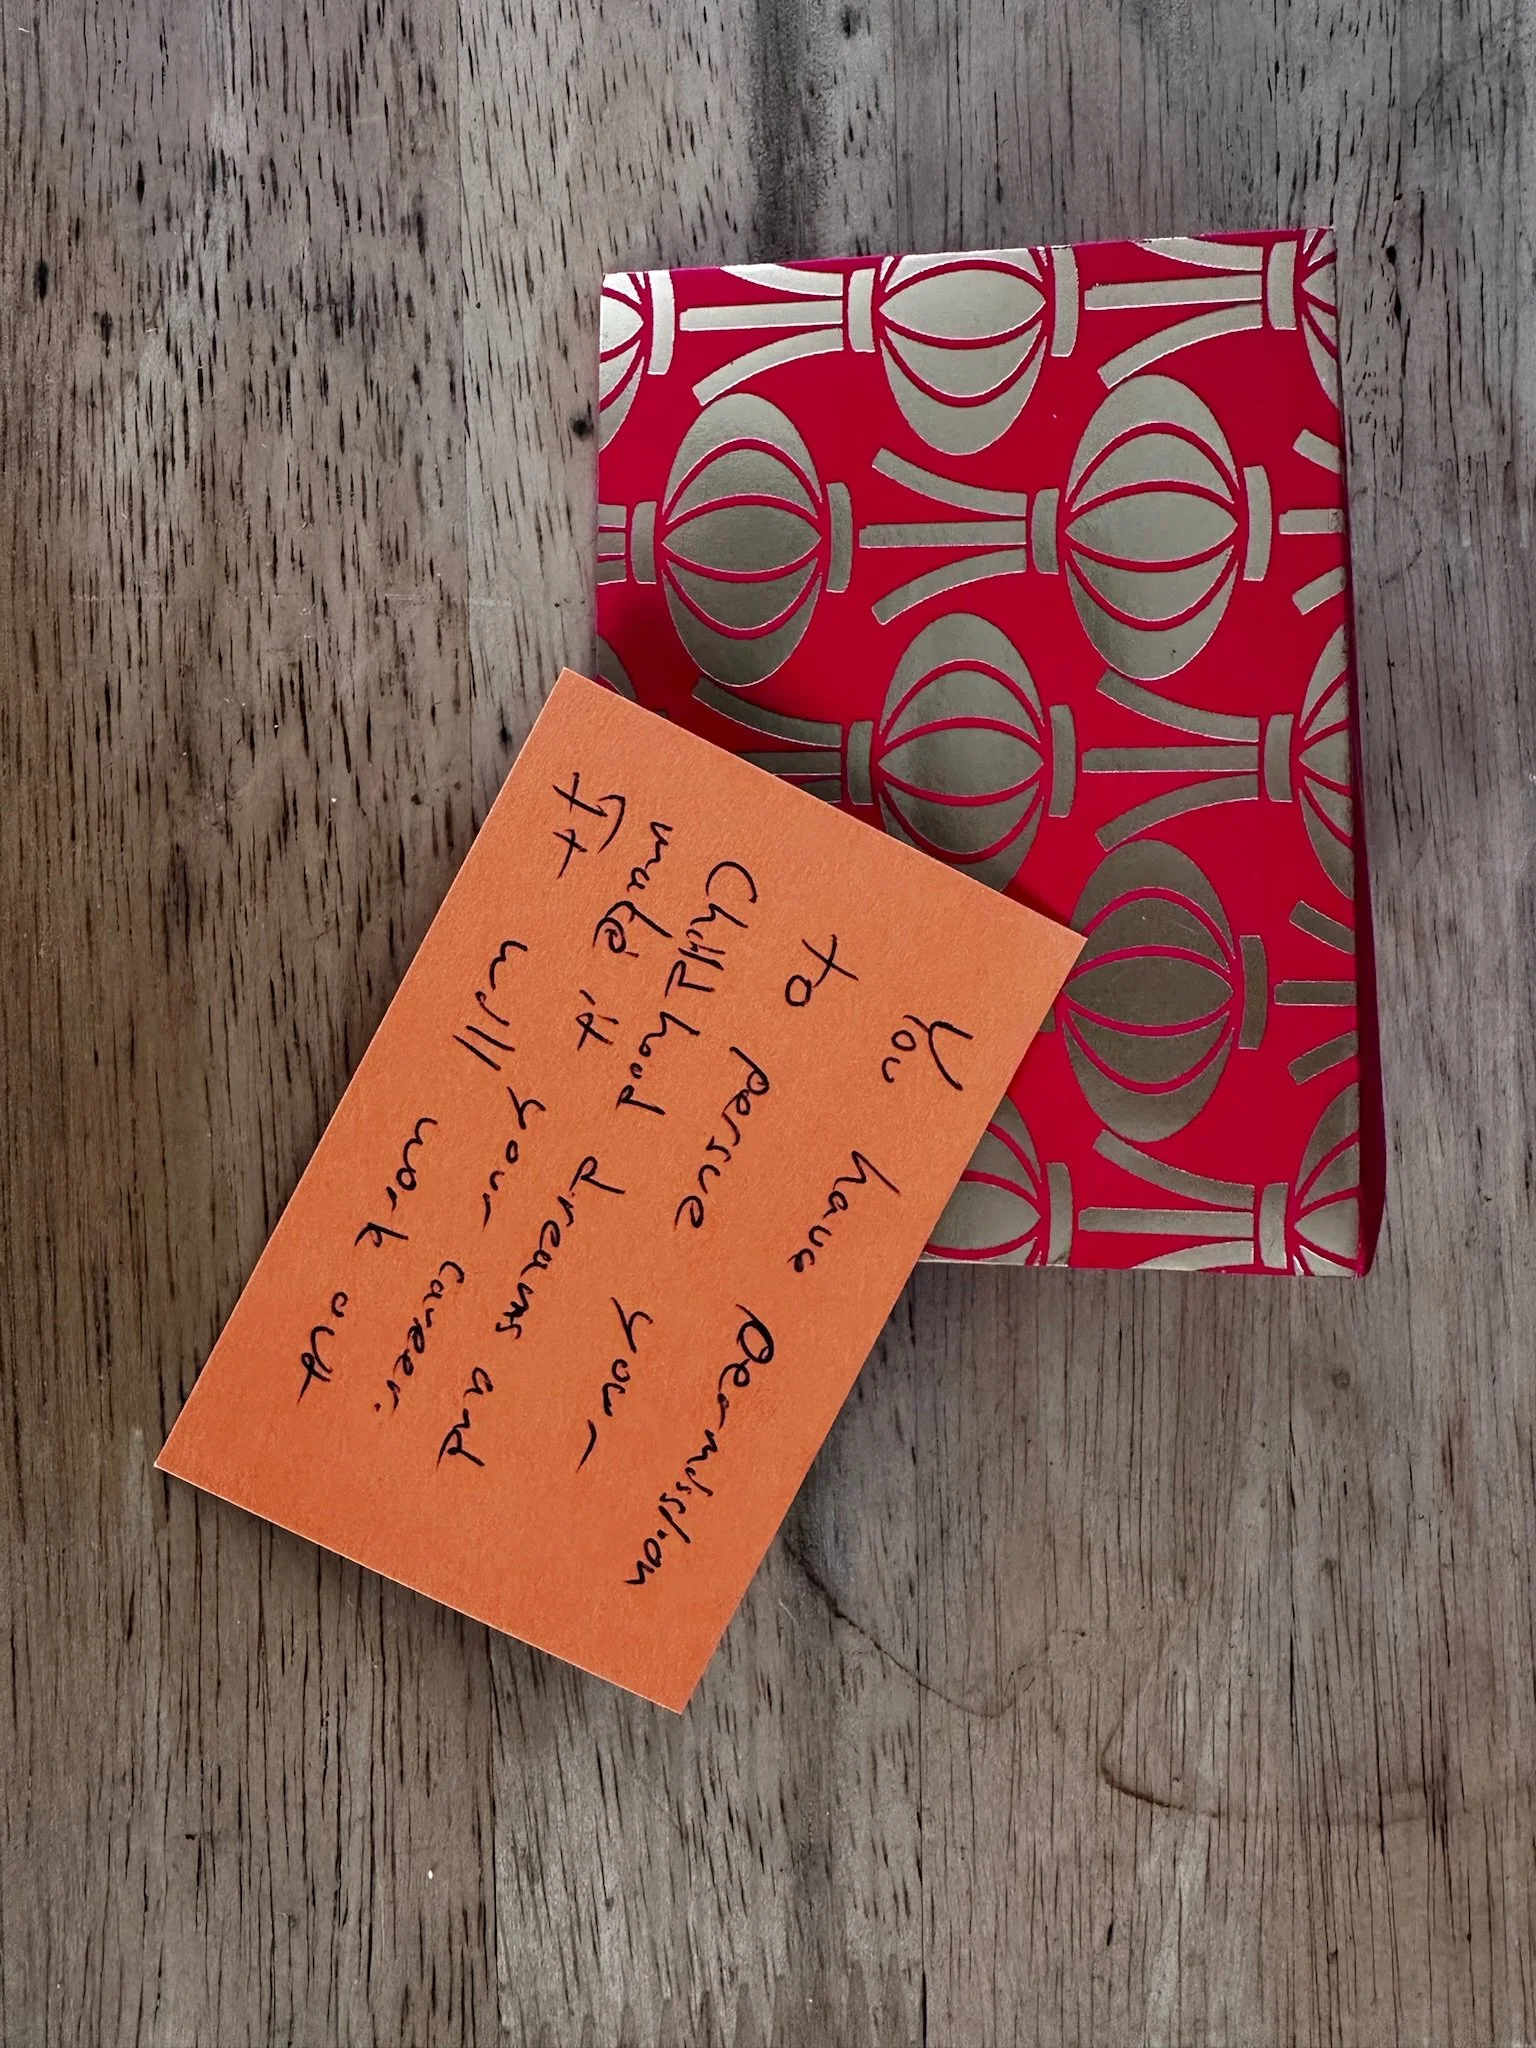 You have Permission
to persue your
Childhood dreams and
make it your career.
It will work out